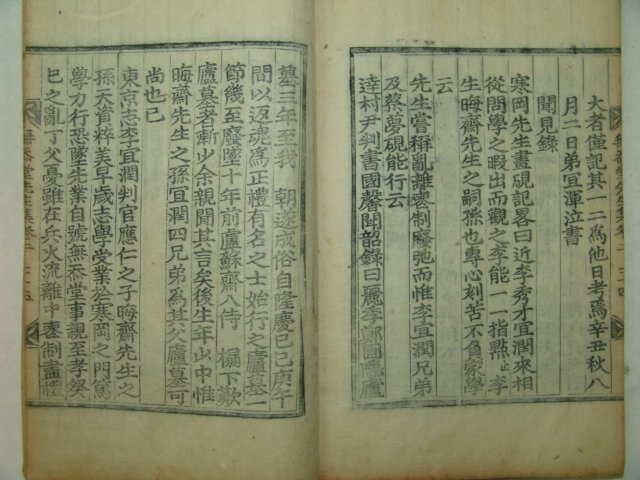 大者僅記其一二爲他日考焉辛丑秋八
月二日弟宜渾泣書
聞見錄
寒岡先生晝硯記畧曰近李秀才宜潤來相
從問學之暇出而觀之李能一一指點止李
生晦齋先生之嗣孫也專心刻苦不負家學
云
先生嘗稱亂離喪制廢弛而惟李宜潤兄弟
及蔡夢硯能行云
達村尹判書國馨聞韶錄曰麗季鄭圃隱廬
墓三年至我 朝遂成俗自隆慶己巳庚午
間以返魂爲正禮有名之士始行之廬墓一
節幾至廢墜十年前盧蘇齋八侍 榻下歎
廬墓者漸少余親聞其言矣後生年少中惟
晦齋先生之孫宜潤四兄弟爲其父廬墓可
尚也已
東京志李宜潤判官應仁之子晦齋先生之
孫天資粹美早歲志學受業於寒岡之門篤
學力行恐墜先業自號無忝堂事親至孝癸
巳之亂丁父憂雖在兵火流離中喪制盡禮
無忝堂先生集卷二 二十五